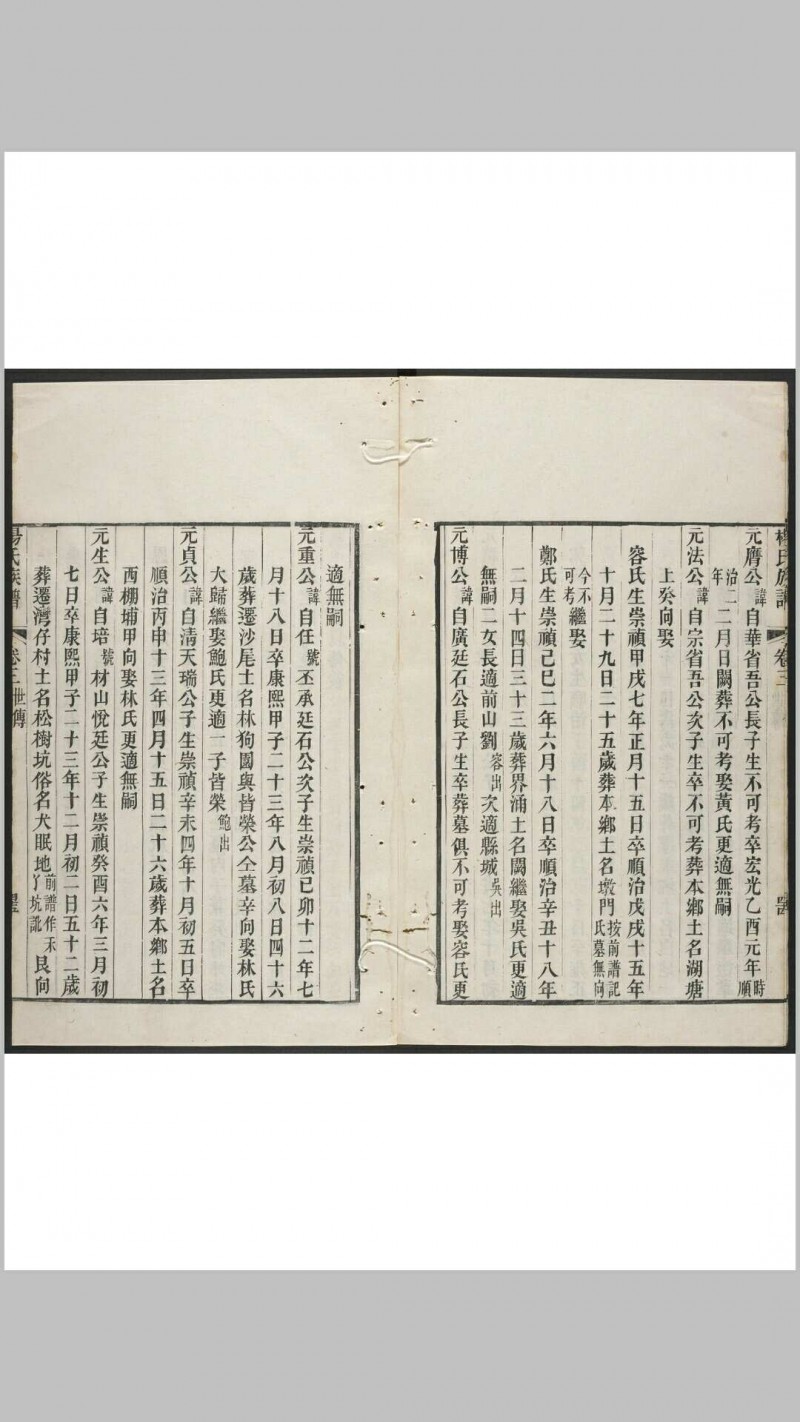 楊氏族譜 卷三
元膺公諱自華省吾公長子生不可考卒宏光乙酉元年時順
治二年二月日闕葬不可考娶黃氏更適無嗣
元法公諱自宗省吾公次子生卒不可考葬本鄉土名湖塘
上癸向娶
容氏生崇禎甲戌七年正月十五日卒順治戊戌十五年
十月二十九日二十五歲葬本鄉土名墩門按前譜記氏墓無向
今不可考繼娶
鄭氏生崇禎己巳二年六月十八日卒順治辛丑十八年
二月十四日三十三歲葬界涌土名闕繼娶吳氏更適
無嗣二女長適前山劉容出次適縣城吳出
元博公諱自廣廷石公長子生卒葬墓俱不可考娶容氏更
適無嗣
元重公諱自任號丕承廷石公次子生崇禎已卯十二年七
月十八日卒康熙甲子二十三年八月初八日四十六
歲葬遷沙尾土名林狗園與皆榮公仝墓辛向娶林氏
大歸繼娶鮑氏更適一子皆榮鮑出
元貞公諱自清天瑞公子生崇禎辛未四年十月初五日卒
順治丙申十三年四月十五日二十六歲葬本鄉土名
西棚埔甲向娶林氏更適無嗣
元生公諱自培號材山悅廷公子生崇禎癸酉六年三月初
七日卒康熙甲子二十三年十二月初二日五十二歲
葬遷灣仔村土名松樹坑俗名犬眠地前譜作禾丫坑訛艮向
楊氏族譜 卷三 世傳